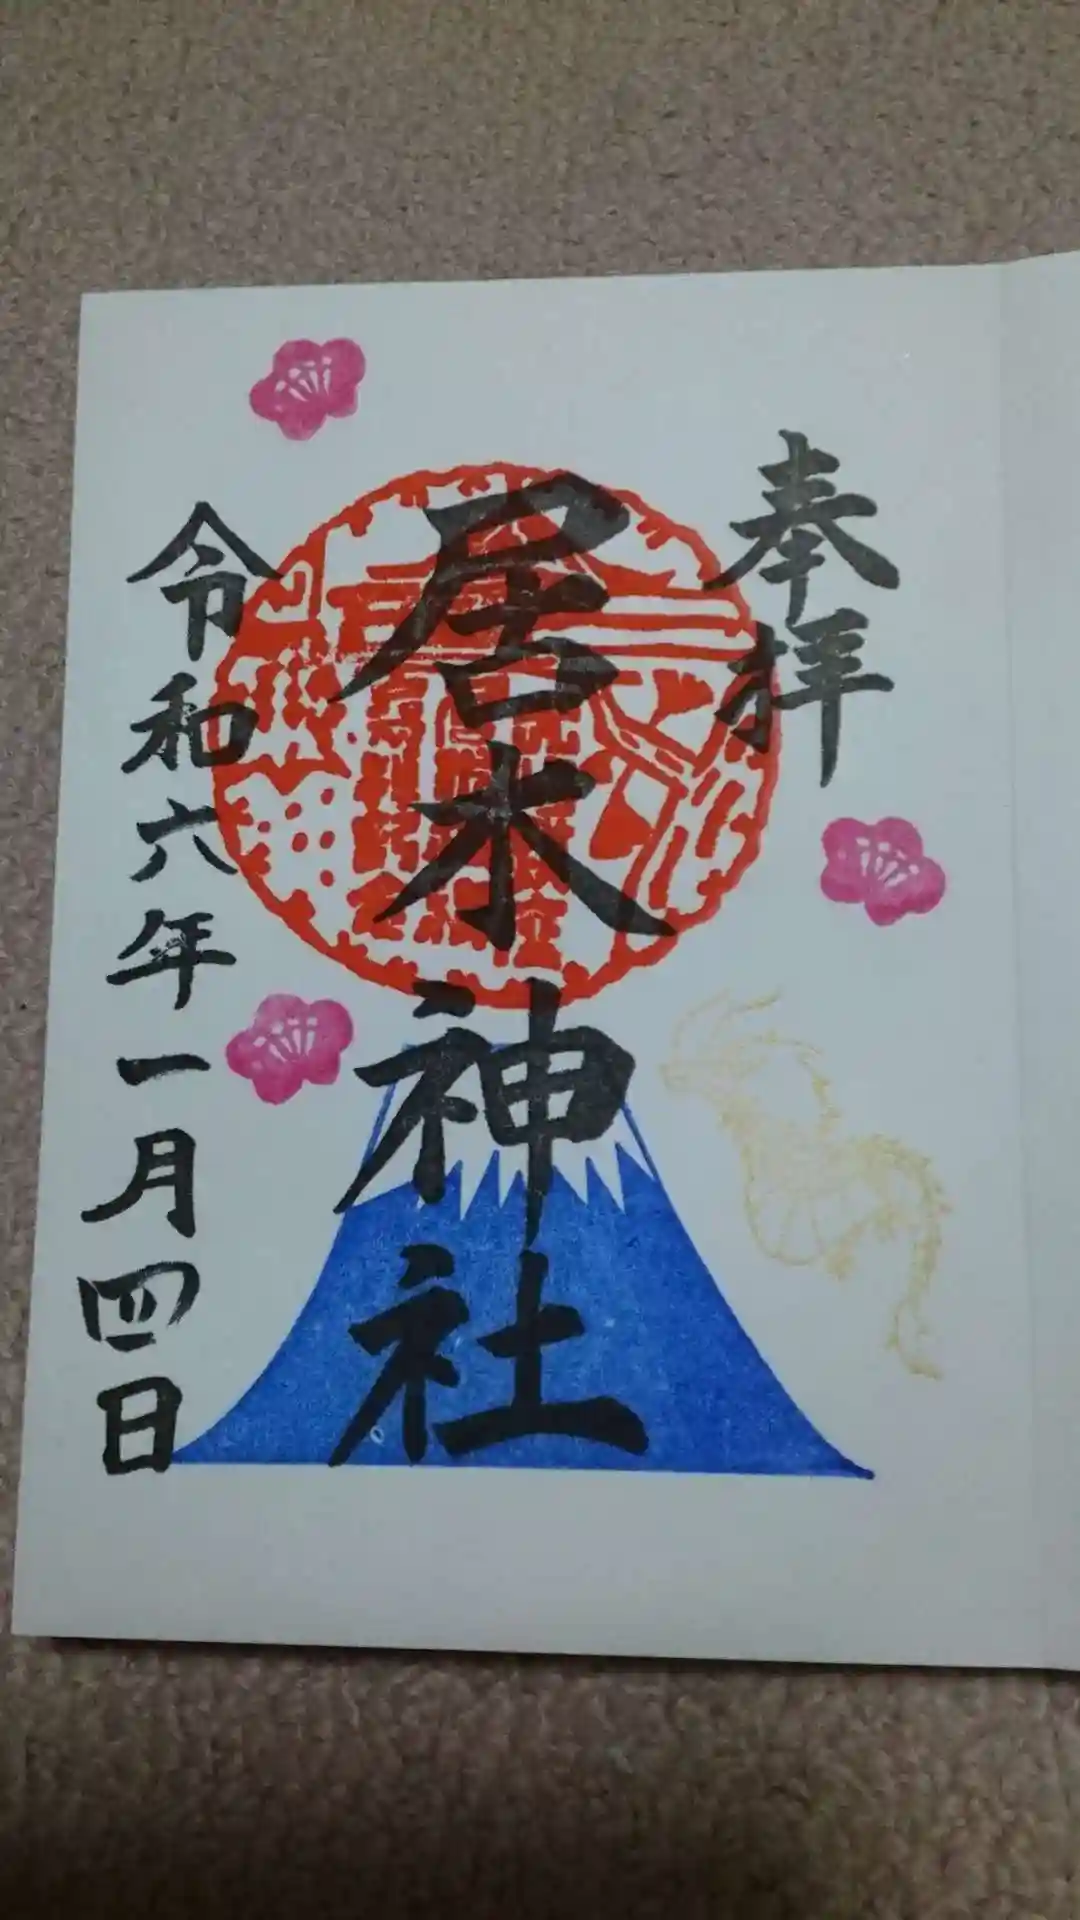 奉拝
居木神社
令和六年一月四日